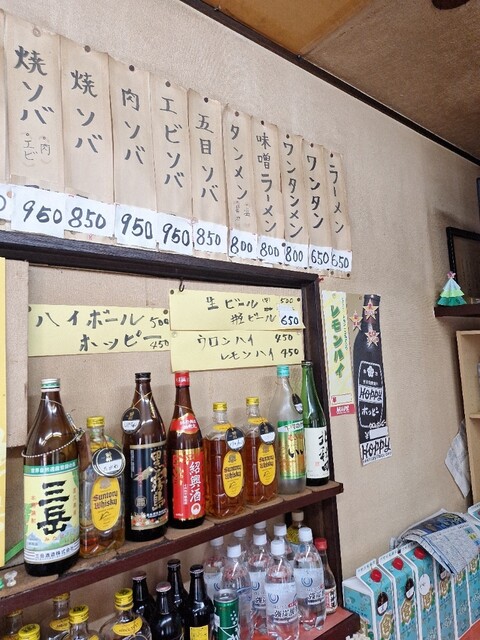 ラーメン
650
ワンタン
650
ワンタンメン
800
味噌ラーメン
800
タンメン
800
五目ソバ
850
エビソバ
950
肉ソバ
950
焼ソバ
850
焼ソバ(肉エビ)
950
ハイボール 500
ホッピー 450
生ビール 500
650
ウロンハイ 450
レモンハイ 450
レモンハイ
HOPPY
ホッピー
HOPPY
三岳
Suntory
Whisky
紹興酒
Suntory
Whisky
Suntory
Whisky
い